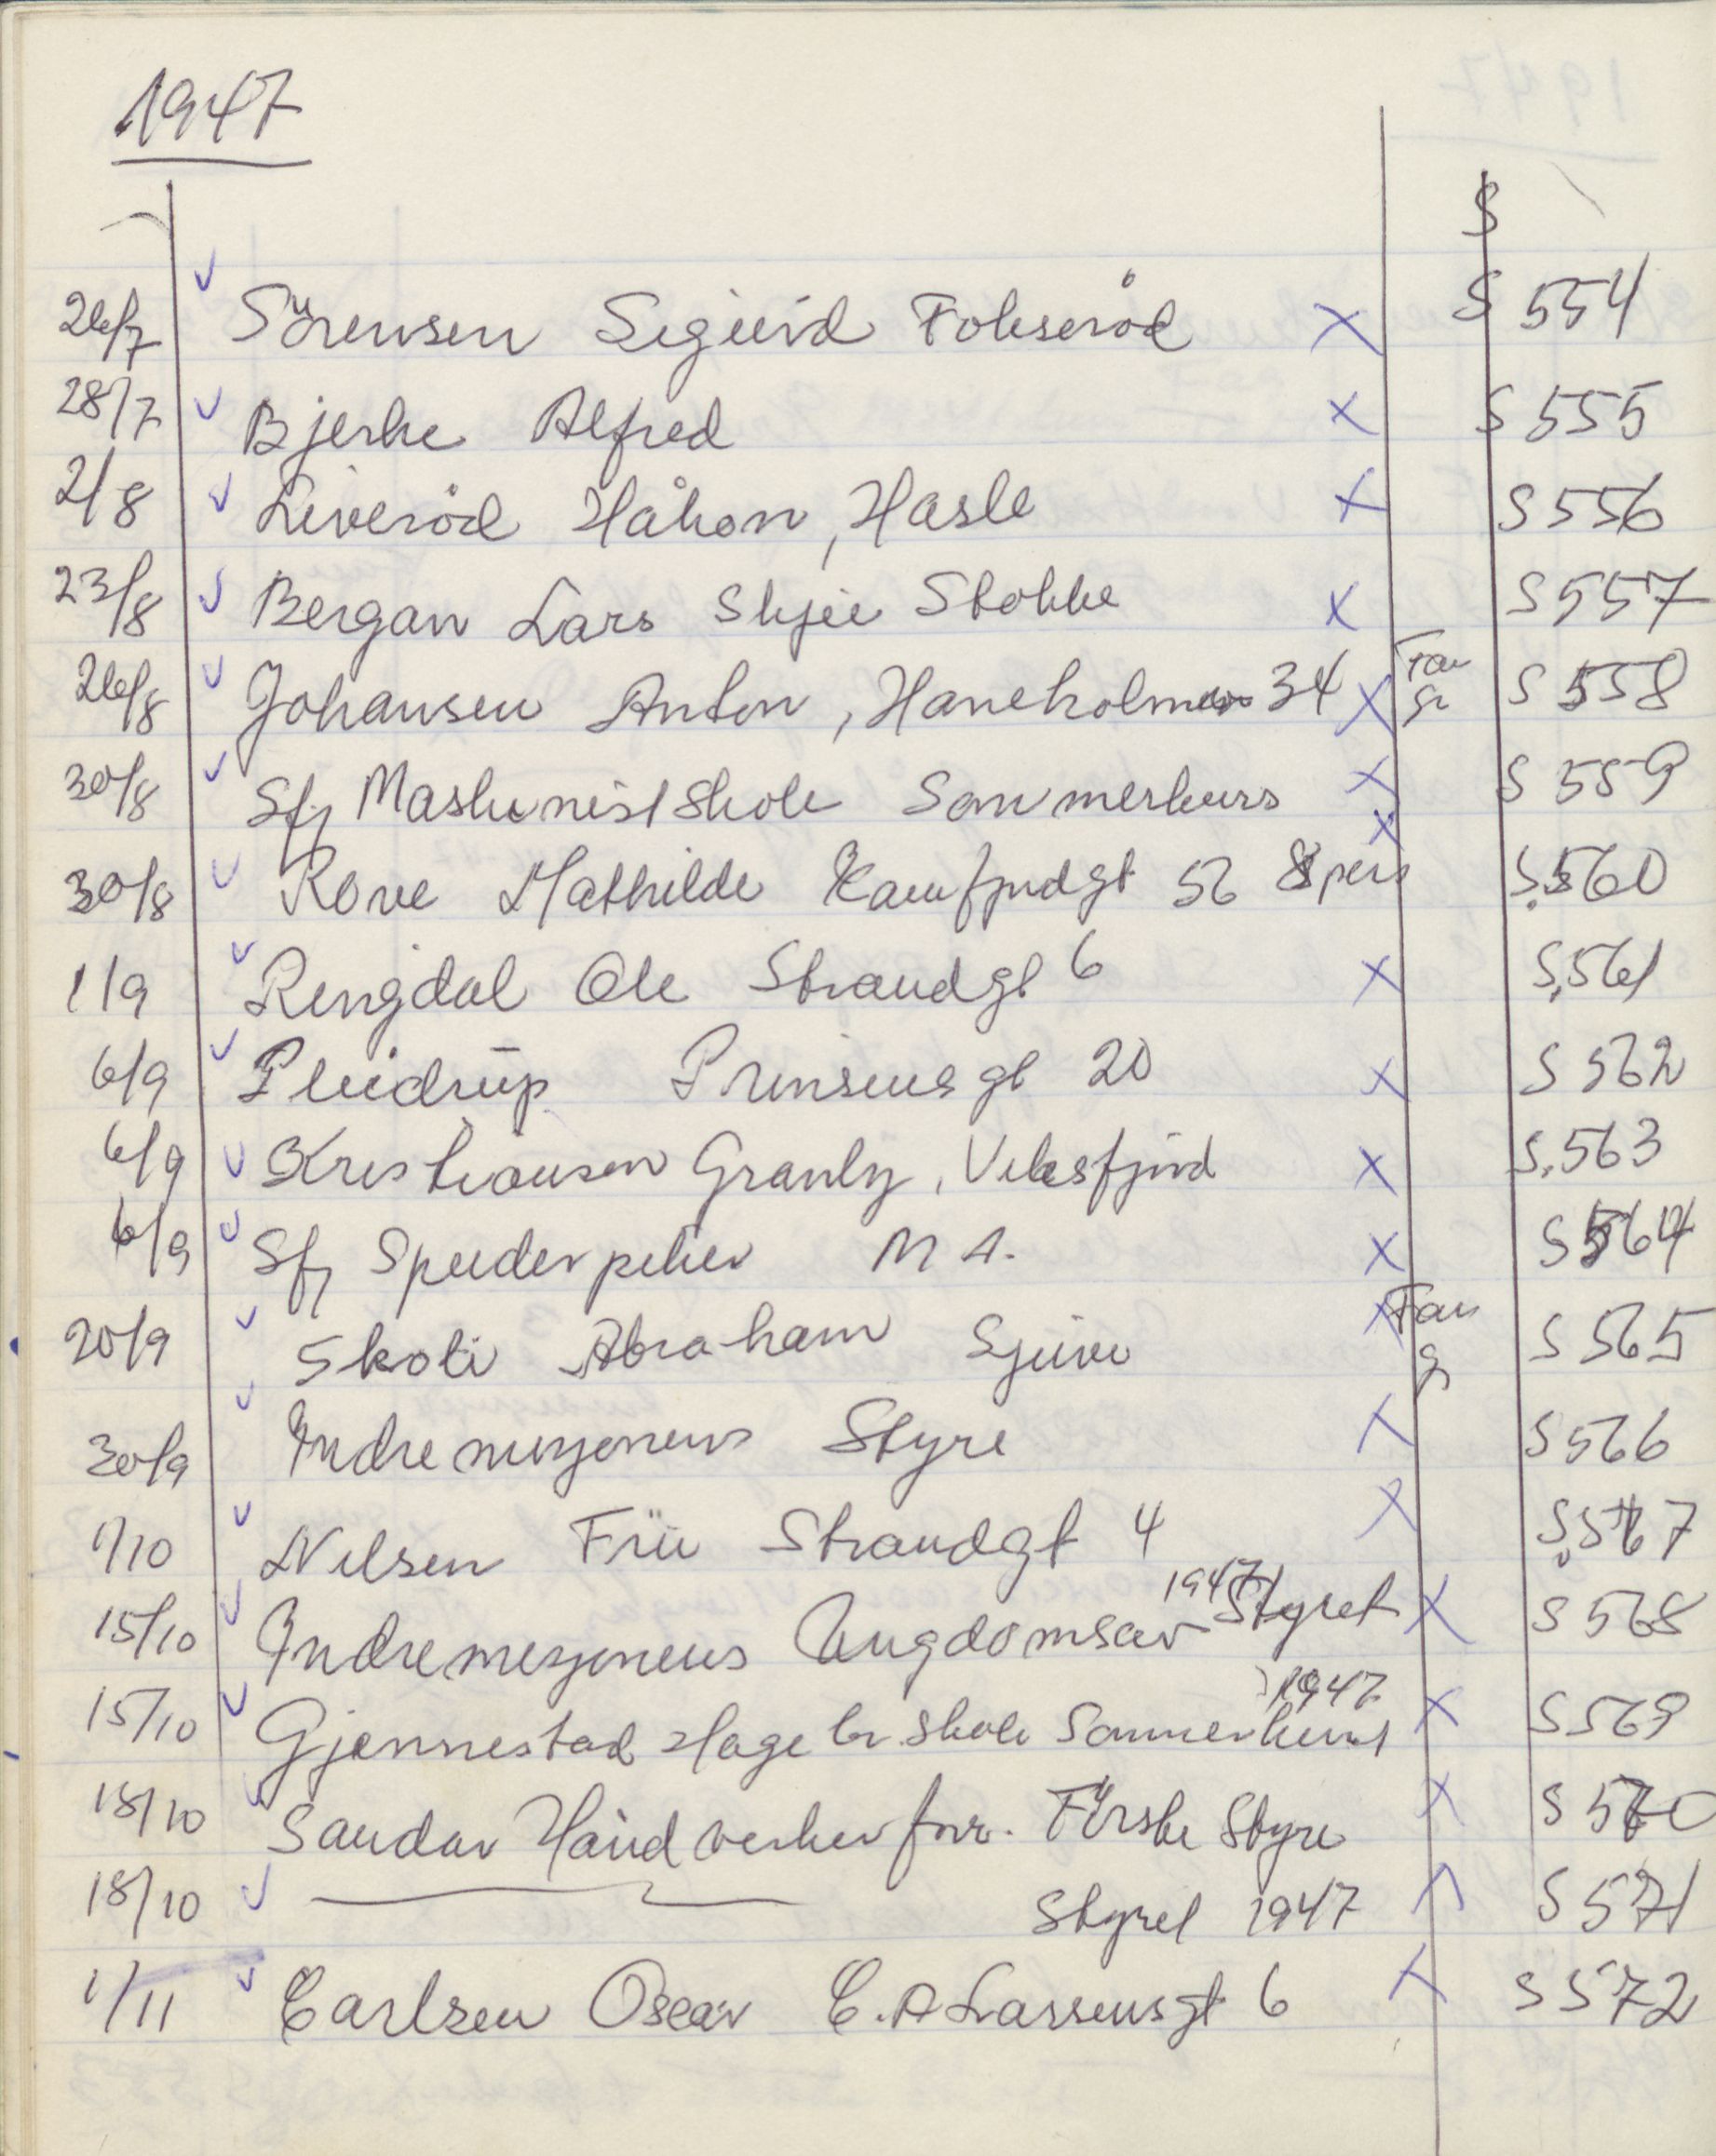 1947
S
26/7 ✓ Sörensen Sigurd Fokserød X S 554
28/7 ✓ Bjerke Alfred X S 555
2/8 ✓ Liverød Håkon, Hasle X S 556
23/8 ✓ Bergan Lars Skjee Stokke X S 557
26/8 ✓ Johansen Anton, Haneholmen 34 X Fan gr S 558
30/8 ✓ Sfj Maskinistskole Sommerkurs X S 559
30/8 ✓ Rove Mathilde Kamfjordgt 56 8 pers X S.560
1/9 ✓ Ringdal Ole Strandgt 6 X S.561
6/9 ✓ Prinsensgt 20 X S 562
6/9 ✓ Kristiansen Granly, Vikesfjord X S.563
6/9 ✓ Sfj Speiderpiker M A. X S 564
20/9 ✓ Skoli Abraham X Fan g S 565
30/9 ✓ Indremisjonens Styre X S 566
1/10 ✓ Nilsen Frü Strandgt 4 X S.567
15/10 ✓ Indremisjonens Ungdomsav Styret 1947 X S 568
15/10 ✓ Gjennestad Hagebr.skole Sommerkurs 1947 X S 569
18/10 ✓ Sandar Håndverker for. Förste Styre X S 570
18/10 ✓ Styret 1947 X S 571
1/11 ✓ Carlsen Oscar C.A Larsensgt 6 X S 572